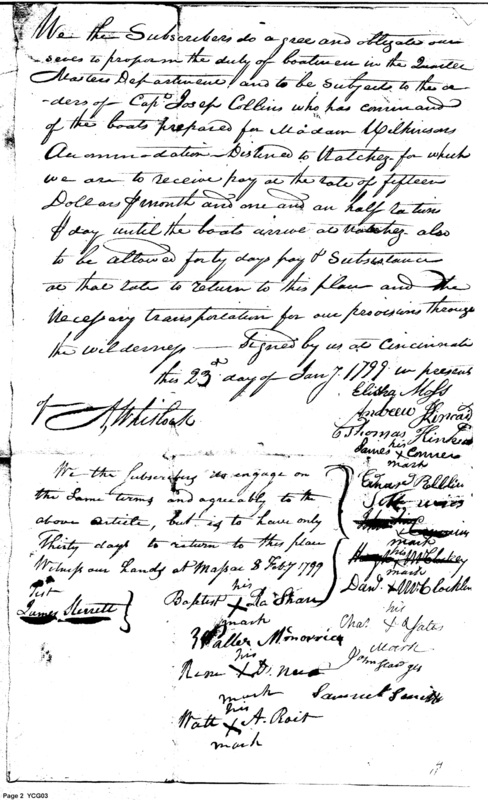 We the Subscribers do agree and obligate our
selves to proporm the duty of boatmen in the Quarter
Masters Department and to be Subject to the or
-ders of Capt Joseph Collins who has command
of the boats prepared for Madam Wilkinsons
Accommodation Distined to Natchez for which
we are to receive pay at the rate of fifteen
Dollars ⅌ month and one and an half rations
⅌ day until the boats arrive at Natchez also
to be allowed forty days pay & Subsistance
at that rate to return to this place and the
necessary transportation for our provisions through
the wilderness — Signed by us at Cincinnati
this 23d day of Jany 1799 in presents
of A Whitlock
Elisha Moss
Andrew Kinrad
Thomas
his
James X Conner
mark
We the Subscribers do engage on
the Same terms and agreeably to the
above article, but is to have only
Thirty days to return to this place
Witness our hands at Massac 8 Feby 1799
Test
James Sterrett
his
Baptist X La Shary
mark
Waller
his
X
mark
his
Watt X A. Roit
mark
mark
his
mark
Danl X McClocklin
his
Chas X Yates
mark
John
Samuel Smith
Page 2 YCG03